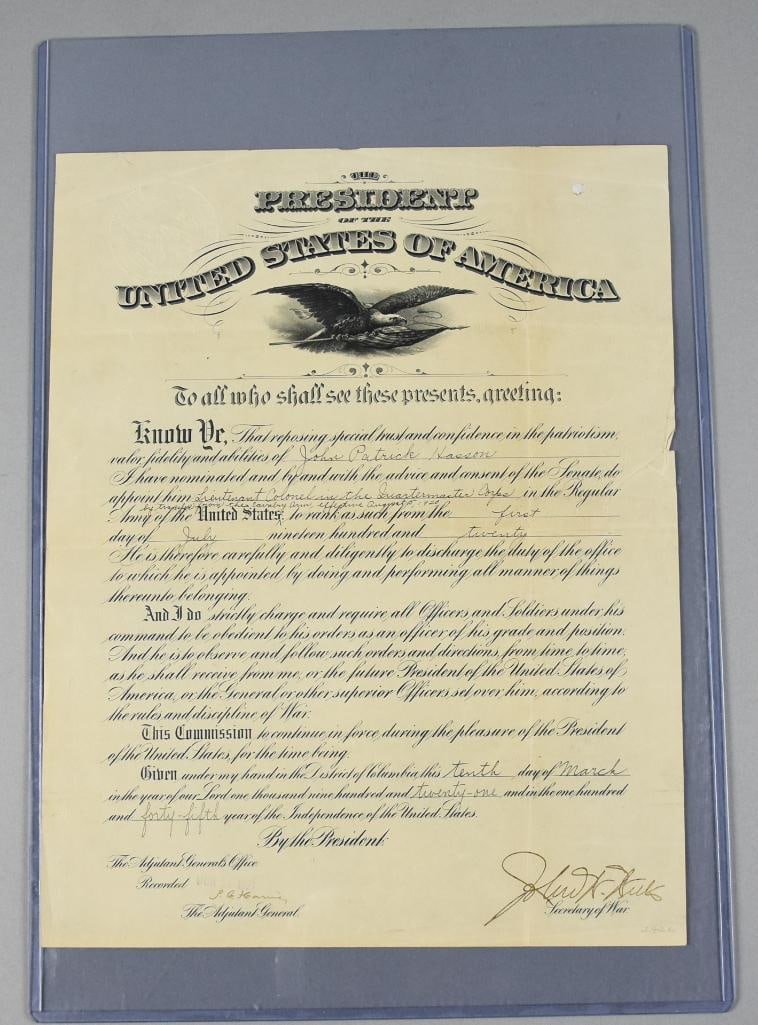 THE
PRESIDENT
OF THE
UNITED STATES OF AMERICA
To all who shall see these presents, greeting:
Know Ye, That reposing special trust and confidence in the patriotism,
valor, fidelity and abilities of John Patrick Hasson
I have nominated and by and with the advice and consent of the Senate, do
appoint him Lieutenant Colonel in the Quartermaster Corps in the Regular
by transfer from the Cavalry arm effective August
Army of the United States, to rank as such from the first
day of July nineteen hundred and twenty
He is therefore carefully and diligently to discharge the duty of the office
to which he is appointed by doing and performing all manner of things
thereunto belonging.
And I do strictly charge and require all Officers and Soldiers under his
command to be obedient to his orders as an officer of his grade and position.
And he is to observe and follow such orders and directions, from time to time,
as he shall receive from me, or the future President of the United States of
America, or the General or other superior Officers set over him, according to
the rules and discipline of War.
This Commission to continue in force during the pleasure of the President
of the United States, for the time being.
Given under my hand in the District of Columbia this tenth day of March
in the year of our Lord one thousand nine hundred and twenty-one and in the one hundred
and forty-fifth year of the Independence of the United States.
By the President:
The Adjutant General's Office
Recorded
The Adjutant General.
Secretary of War.